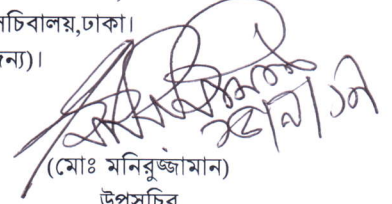 সচিবালয়,ঢাকা।
ন্য)।
(মোঃ মনিরুজ্জামান)
উপসচিব